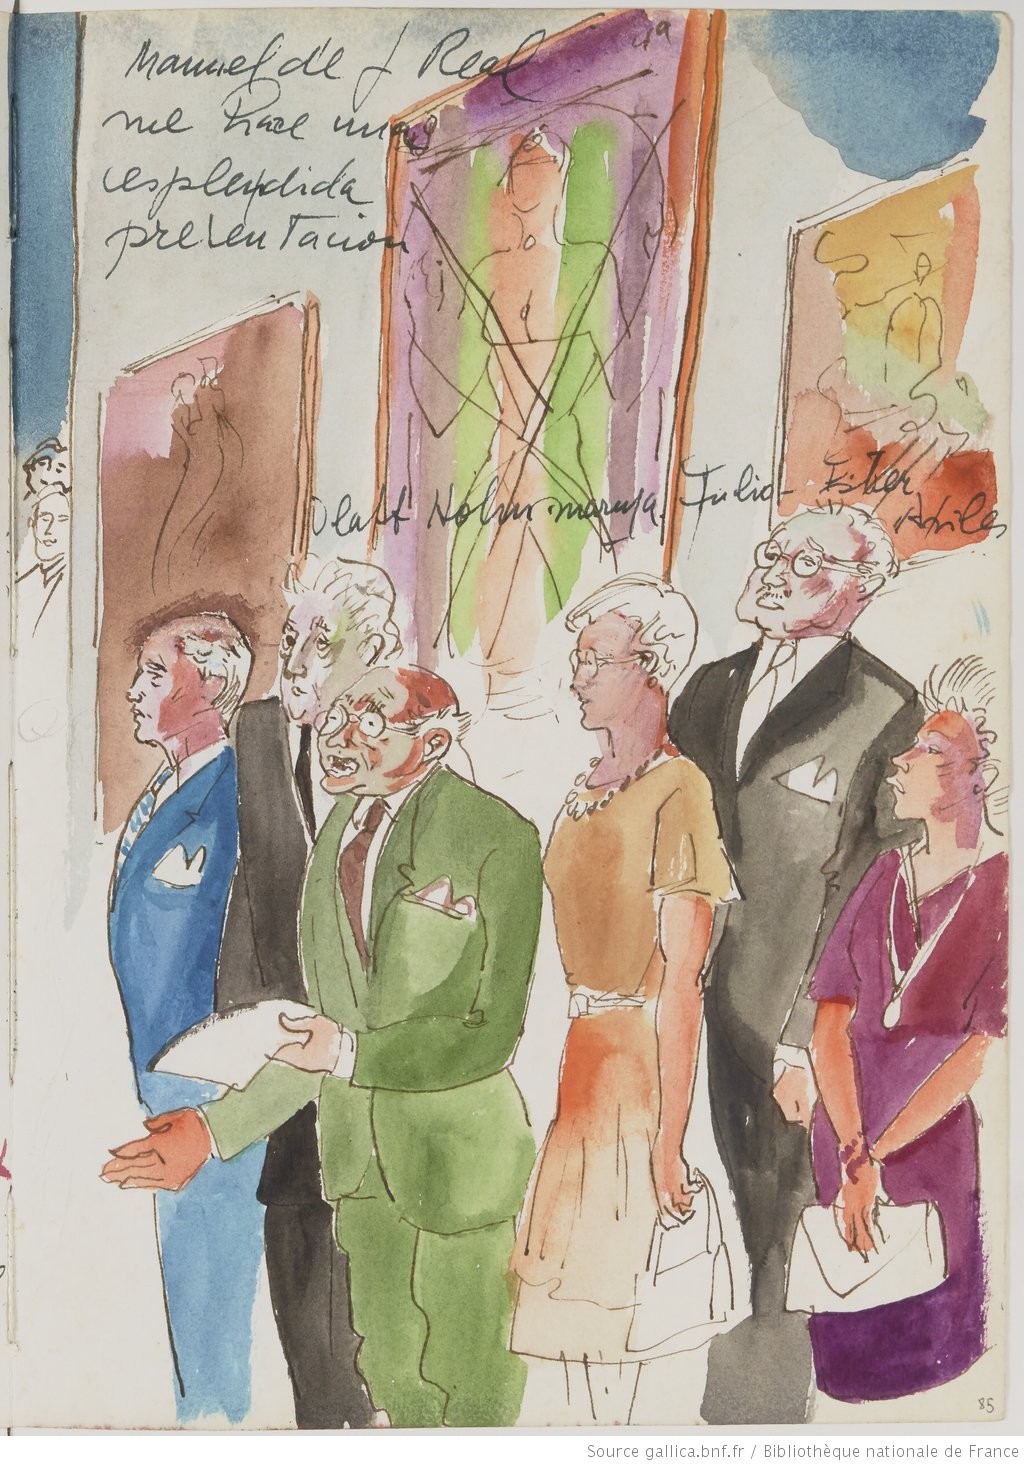 Manuel de J Real
me hace una
esplendida
presentacion
Olaff Holm maruja. Julio - Ester
Aviles
85
Source gallica.bnf.fr / Bibliothèque nationale de France